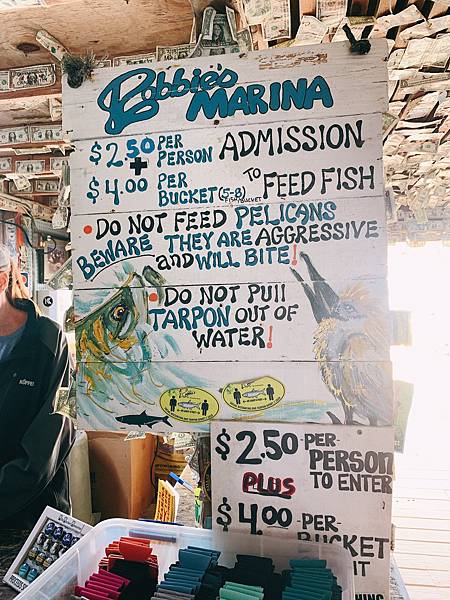 Robbie's
MARINA
$2.50 PER PERSON ADMISSION
+
$4.00 PER BUCKET (5-8) TO FEED FISH
FISH/BUCKET
• DO NOT FEED PELICANS
BEWARE THEY ARE AGGRESSIVE
and WILL BITE!
• DO NOT PUll
TARPON OUT OF
WATER!
$2.50 -PER-
PERSON
PLUS TO ENTER
$4.00 -PER-
BUCKET